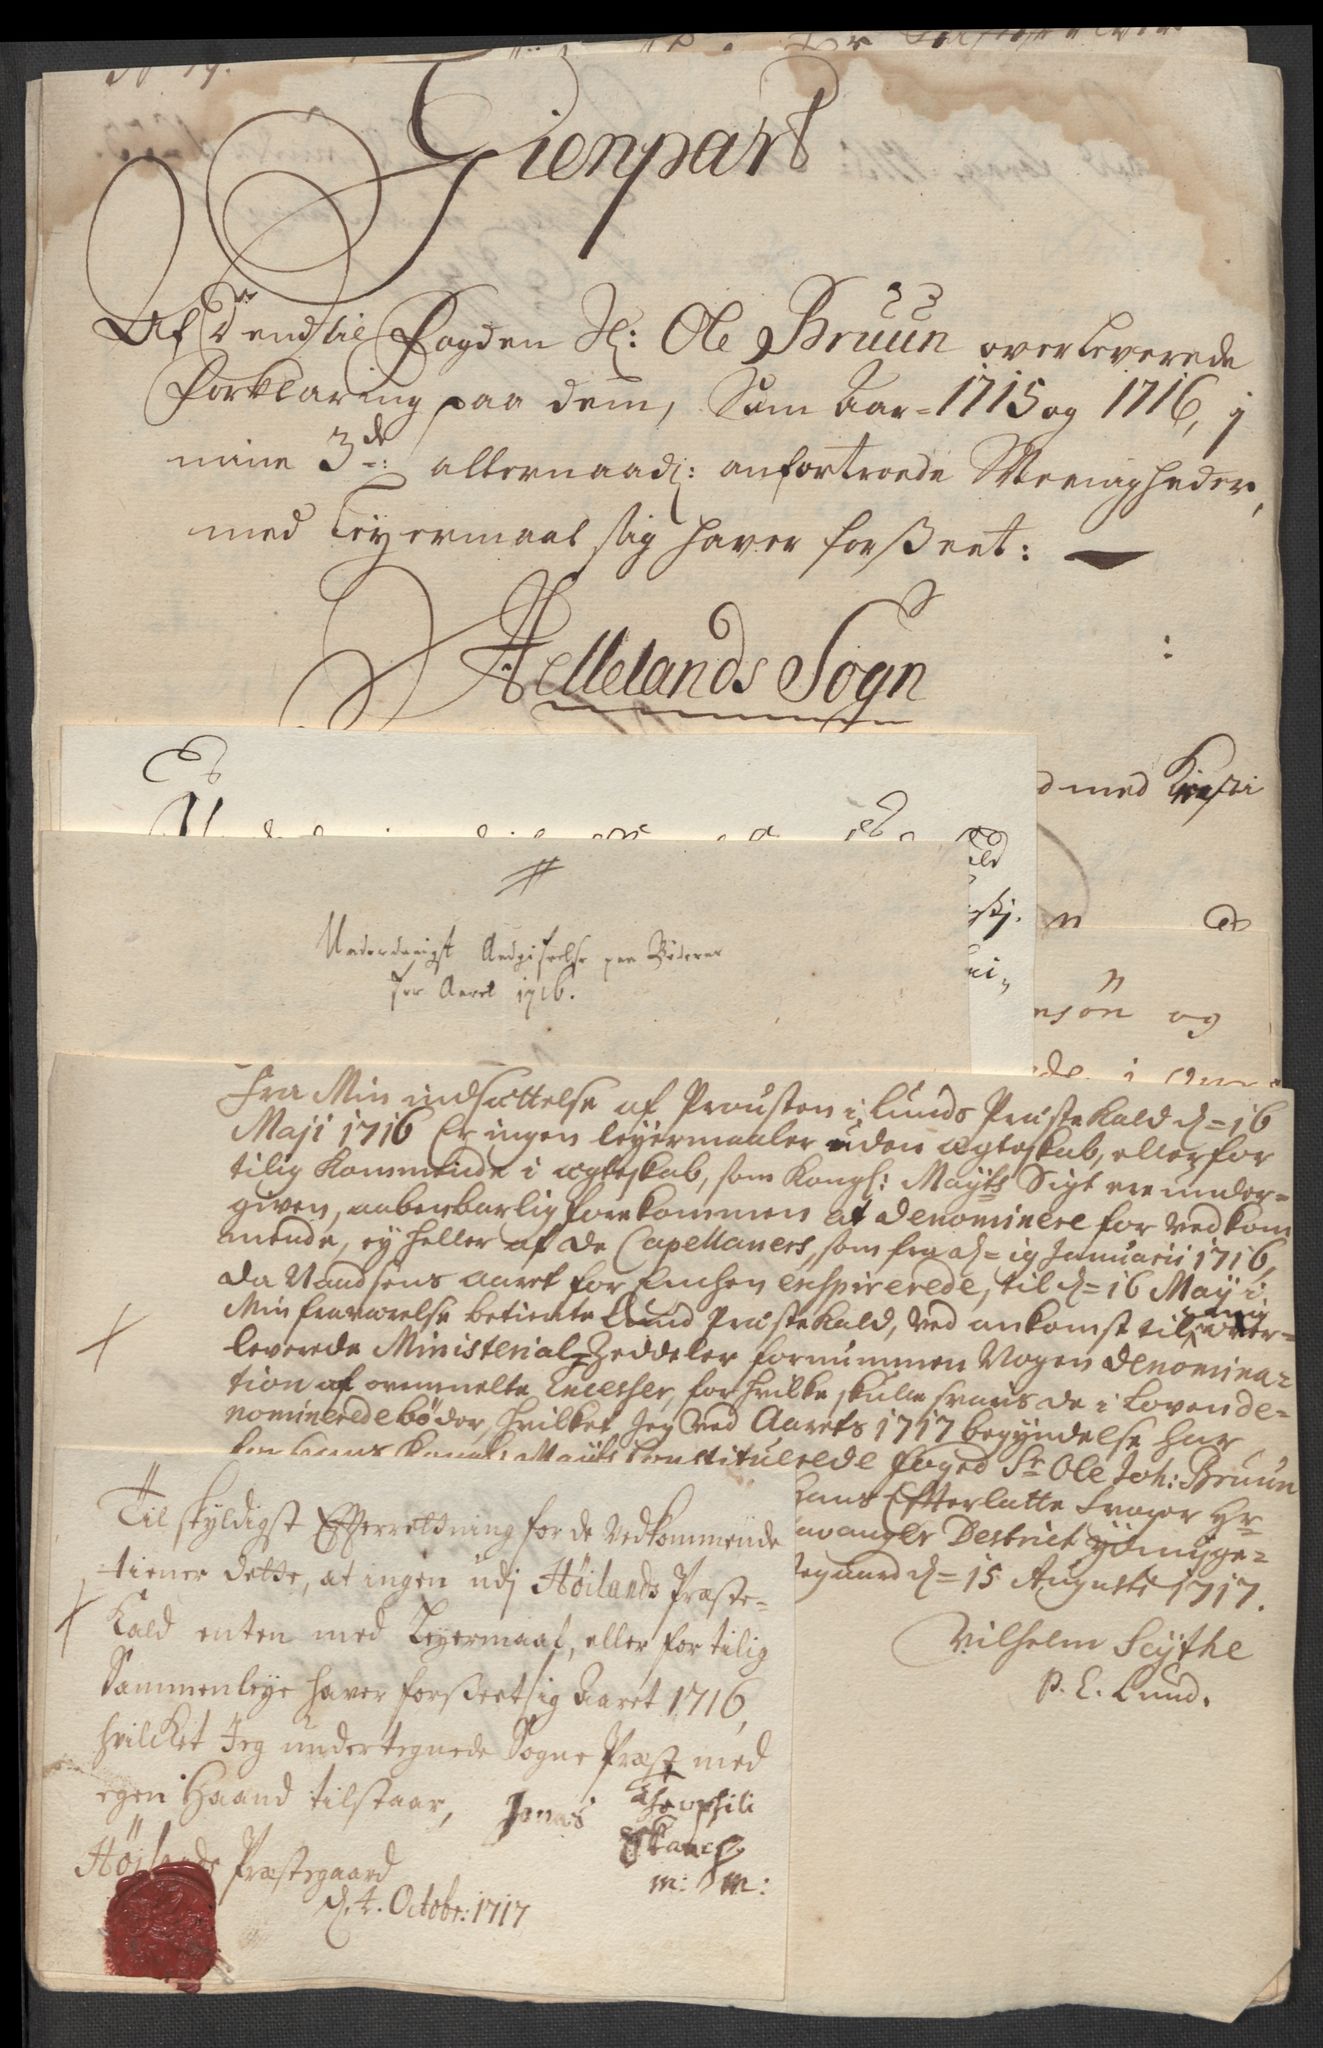 No 19.
Gienpart
Af den til Fogden Sr: Ole Bruun overleverede
Forklaring paa dem, Som Aar=1715 og 1716, j
mine 3de: allernaadi: anfortroede Meenigheder,
med Leyermaal sig haver forßeet:
Hellelands Sogn
d med Kirsti
Underdanigst Andgifvelse paa Bøderne
for Aaret 1716.
nsøn og
Fra Min indsættelse af Prousten i Lunds Præstekald d=16
Maji 1716 Er ingen leyermaaler uden ægteskab, eller for
tilig kommende i ægteskab, som Kongl: Mayts Sigt ere under=
given, aabenbarlig forekommen at denominere for vedkom
mende, ey heller af de Capellaners, som fra d=19 Januarii 1716,
da Naadsens aaret for Enchen exspirerede, til d=16 Maij i
Min fraværelse betiente Lund Præstekald, ved ankomst til
leverede Ministerial=Zeddeler fornummen Nogen denomina=
tion af ovenmelte Excesser, for hvilke skulle svares de i Loven de=
nominerede bøder, hvilket Jeg ved Aarets 1717 begyndelse har
for Hans Kongl: Mayts Constituerede foged Sr Ole Joh: Bruun
hans Efterlatte Svoger Hr
avanger Destrict ydmyge=
tegaard d=15 Augusti 1717.
Vilhelm Scythe
P. L. Lund.
Til skyldigst Efterretning for de vedkommende
tiener dette, at ingen udj Høilands Præste=
Kald enten med Leyermaal, eller for tilig
Sammenleye haver forßeet sig Aaret 1716,
hvilcket Jeg undertegnede Sogne Præst med
egen Haand tilstaar, Jonas Theophili
Skanch
m: m:
Høilands Præstegaard
d. 4. Octobr: 1717